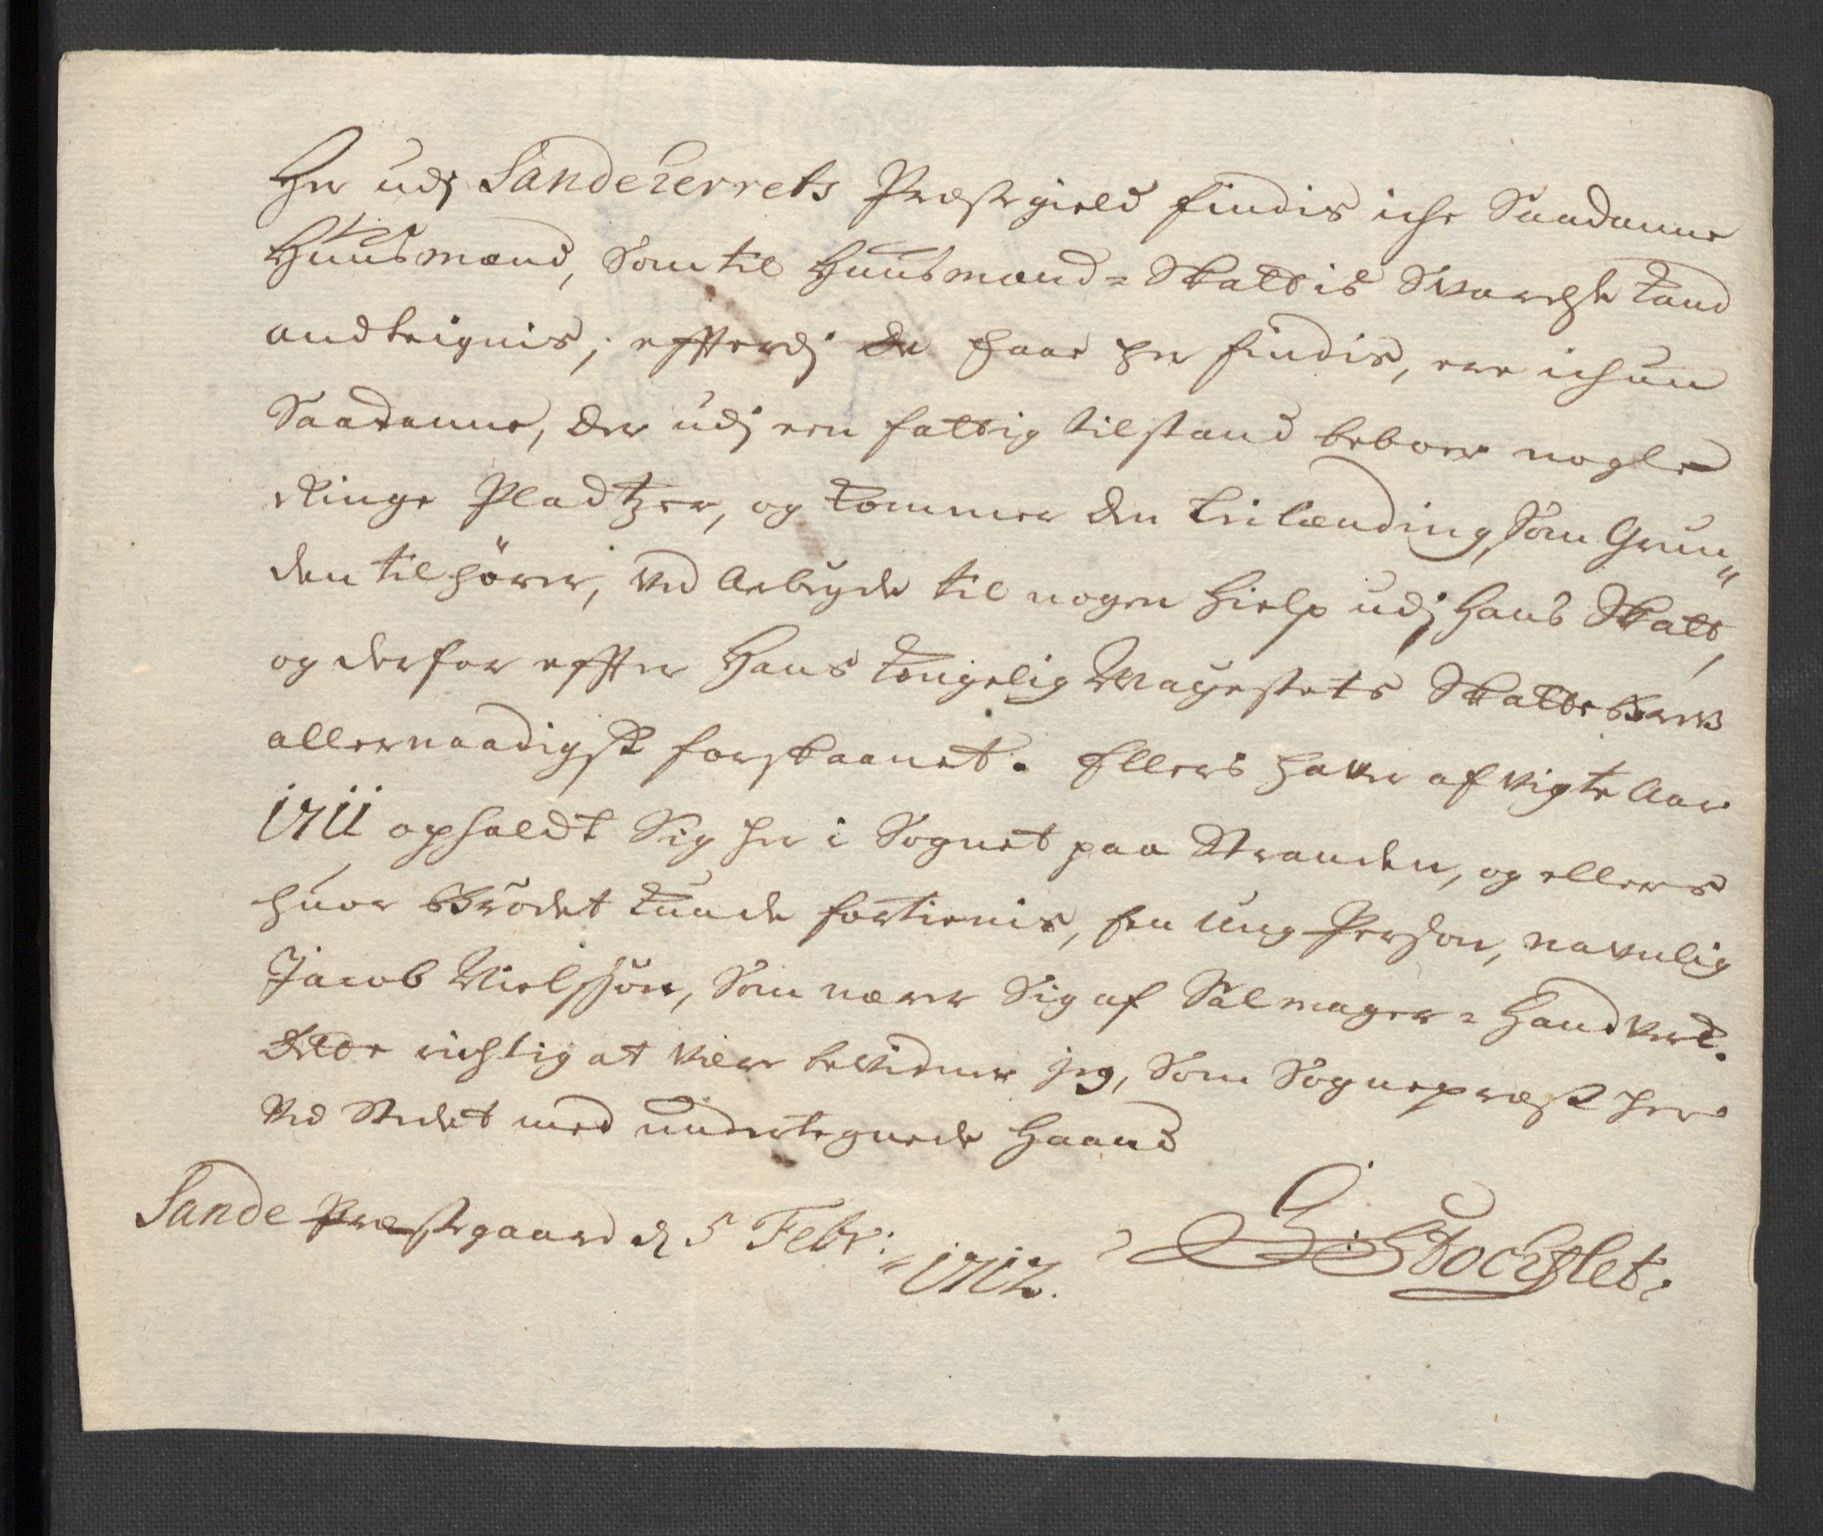 Her udj Sandeherrets Præstegield findis iche Saadanne
Huusmænd, Som til Huusmænd-Skattis Svarelse kand
andteignis; effterdj de faae her findis, ere ichun
Saadanne, der udj een fattig tilstand beboer nogle
Ringe Pladtzer, og kommer den Leilænding, Som Grun"
den tilhører, ved Arbeyde til nogen hielp udj hans Skatt,
og derfor effter Hans Kongelig Mayestets Skattebrev
allernaadigst forskaanet. Ellers haver afvigte Aar
1711 opholdt Sig her i Sognet paa Stranden, og ellers
huor Brødet kunde fortienis, een Ung Person, navnlig
Jacob Nielssøn, Som nærer Sig af Salmager-Handverk.
Dette richtig at være bevidner jeg, Som Sognepræst her
ved Stedet med undertegnede Haand
Sande Præstegaard d 5 Febr: 1712. Stochflet.